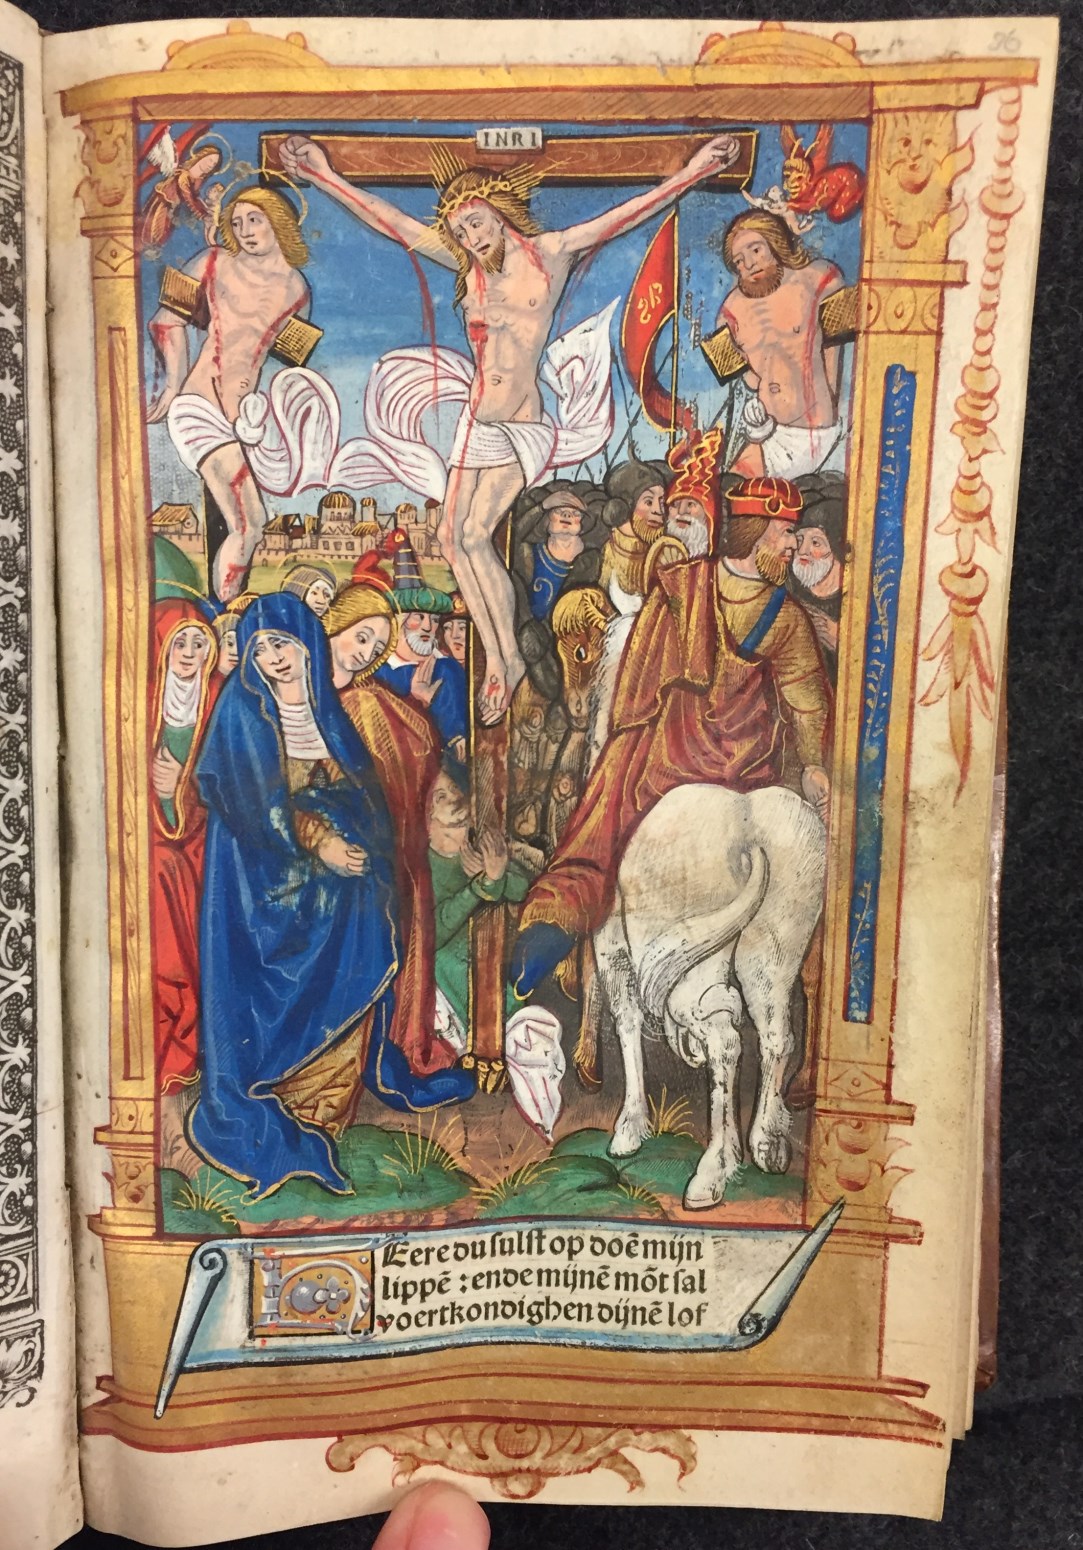 26
INRI
HEere du sulst op doē mijn
lippē : ende mijnē mōt sal
voertkondighen dijnē lof